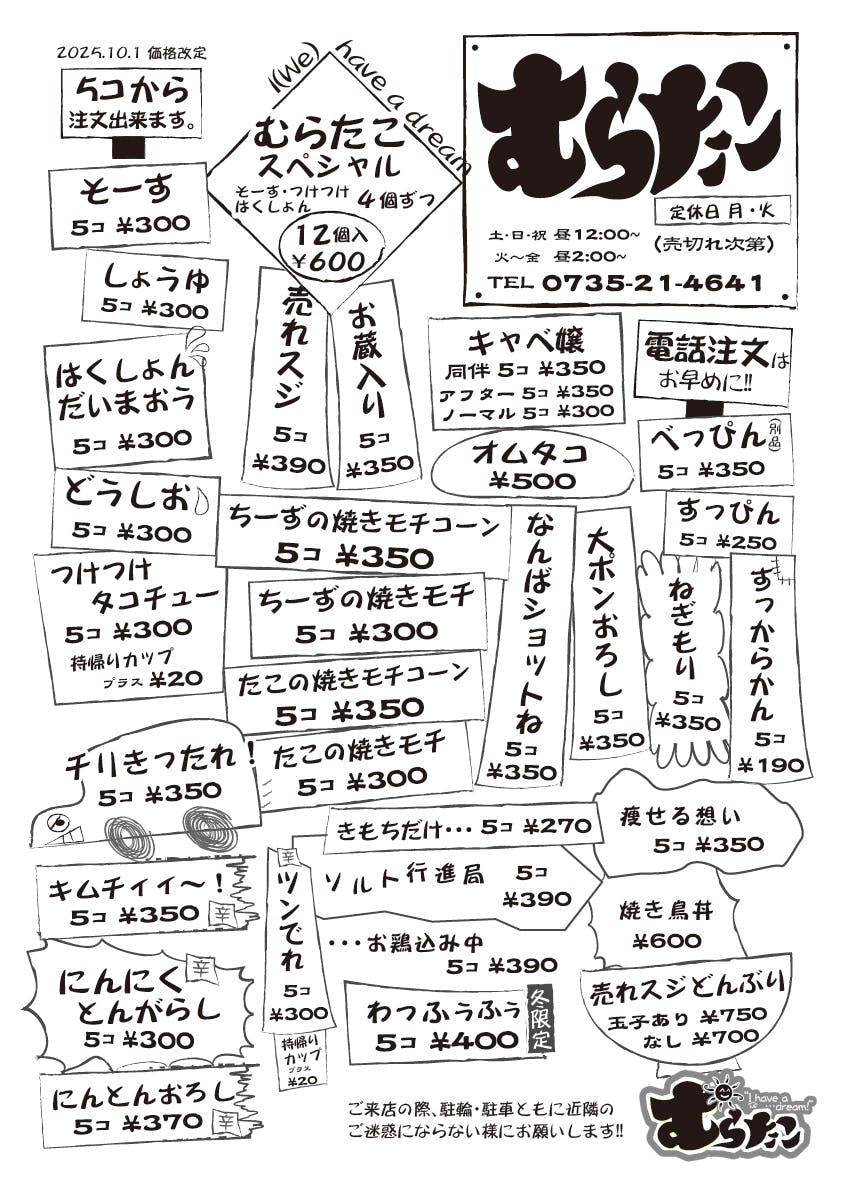 2025.10.1 価格改定
5コから
注文出来ます。
I(We) have a dream
むらたこ
スペシャル
そーす・つけつけ
はくしょん
4個ずつ
12個入
¥600
むらたこ
定休日 月・火
土・日・祝 昼12:00~
火~金 昼2:00~
(売切れ次第)
TEL 0735-21-4641
そーす
5コ ¥300
しょうゆ
5コ ¥300
はくしょん
だいまおう
5コ ¥300
どうしお
5コ ¥300
つけつけ
タコチュー
5コ ¥300
持帰りカップ
プラス ¥20
売れスジ
5コ
¥390
お蔵入り
5コ
¥350
キャベ嬢
同伴 5コ ¥350
アフター 5コ ¥350
ノーマル 5コ ¥300
オムタコ
¥500
電話注文は
お早めに!!
べっぴん(別品)
5コ ¥350
すっぴん
5コ ¥250
ちーずの焼きモチコーン
5コ ¥350
ちーずの焼きモチ
5コ ¥300
たこの焼きモチコーン
5コ ¥350
たこの焼きモチ
5コ ¥300
なんばショットね
5コ
¥350
大ポンおろし
5コ
¥350
ねぎもり
5コ
¥350
すっからかん
5コ
¥190
チリきつたれ!
5コ ¥350
キムチイィ~!
5コ ¥350 辛
にんにく
とんがらし
辛
5コ ¥300
にんとんおろし
5コ ¥370 辛
辛
ツンでれ
5コ
¥300
持帰り
カップ
プラス
¥20
きもちだけ… 5コ ¥270
ソルト行進局 5コ
¥390
…お鶏込み中
5コ ¥390
わつふぅふぅ
5コ ¥400
冬限定
痩せる想い
5コ ¥350
焼き鳥丼
¥600
売れスジどんぶり
玉子あり ¥750
なし ¥700
ご来店の際、駐輪・駐車ともに近隣の
ご迷惑にならない様にお願いします!!
"I have a dream!"
むらたこ